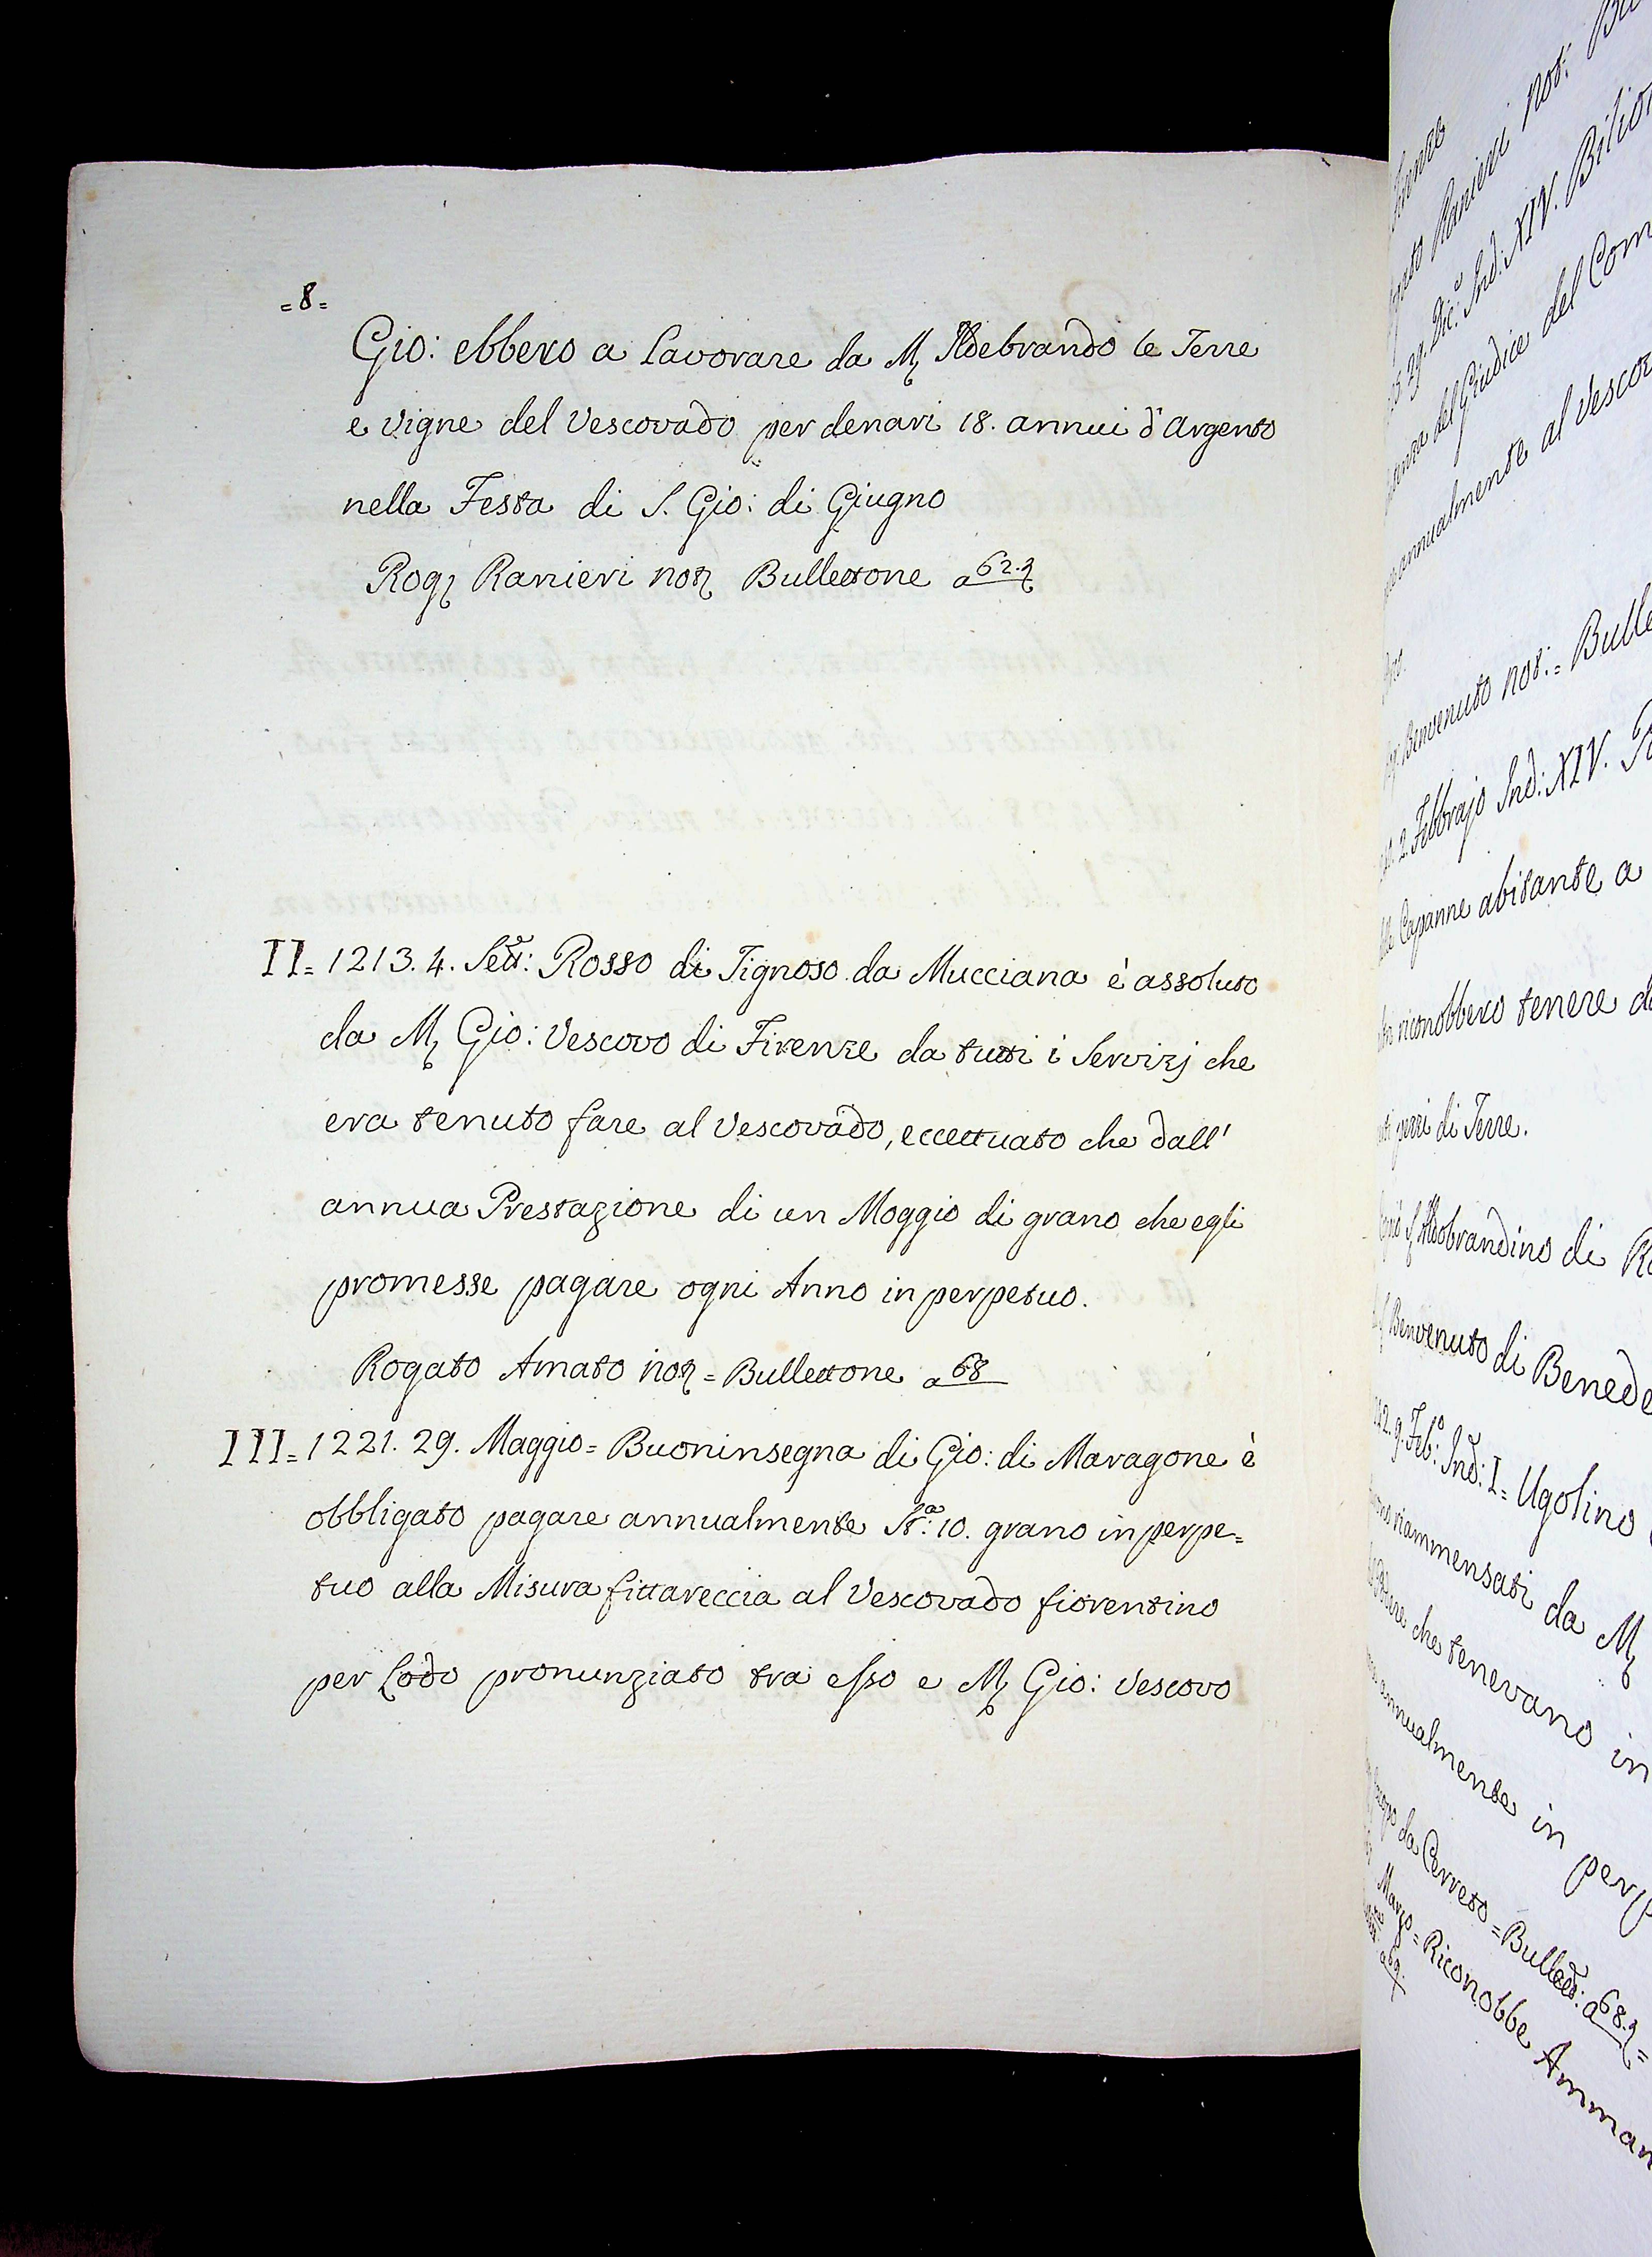 =8=
Gio: ebbero a Lavorare da M Ildebrando le Terre
e Vigne del Vescovado per denari 18. annui d'Argento
nella Festa di S. Gio: di Giugno
Rog Ranieri not Bullettone a 62.
II= 1213. 4. Sett: Rosso di Tignoso da Mucciana è assoluto
da M Gio: Vescovo di Firenze da tutti i Servizj che
era tenuto fare al Vescovado, eccettuato che dall'
annua Prestazione di un Moggio di grano che egli
promesse pagare ogni Anno in perpetuo.
Rogato Amato not = Bullettone a 68
III= 1221. 29. Maggio= Buoninsegna di Gio: di Maragone è
obbligato pagare annualmente St:a 10. grano in perpe=
tuo alla Misura fittareccia al Vescovado fiorentino
per Lodo pronunziato tra esso e M Gio: Vescovo
Ranieri not:
29. Dic:e Ind: XIV.
del Giudice del
annualmente al
Benvenuto not:=
2. Febbrajo Ind: XIV.
Capanne abitante a
riconobbero tenere
di Terre.
Aldobrandino di
Benvenuto di
9. Feb:o Ind: I= Ugolino
riammensati da M
che tenevano in
annualmente in
da Cerreto = Bullett: a 68.=
Marzo= Riconobbe
a 69.